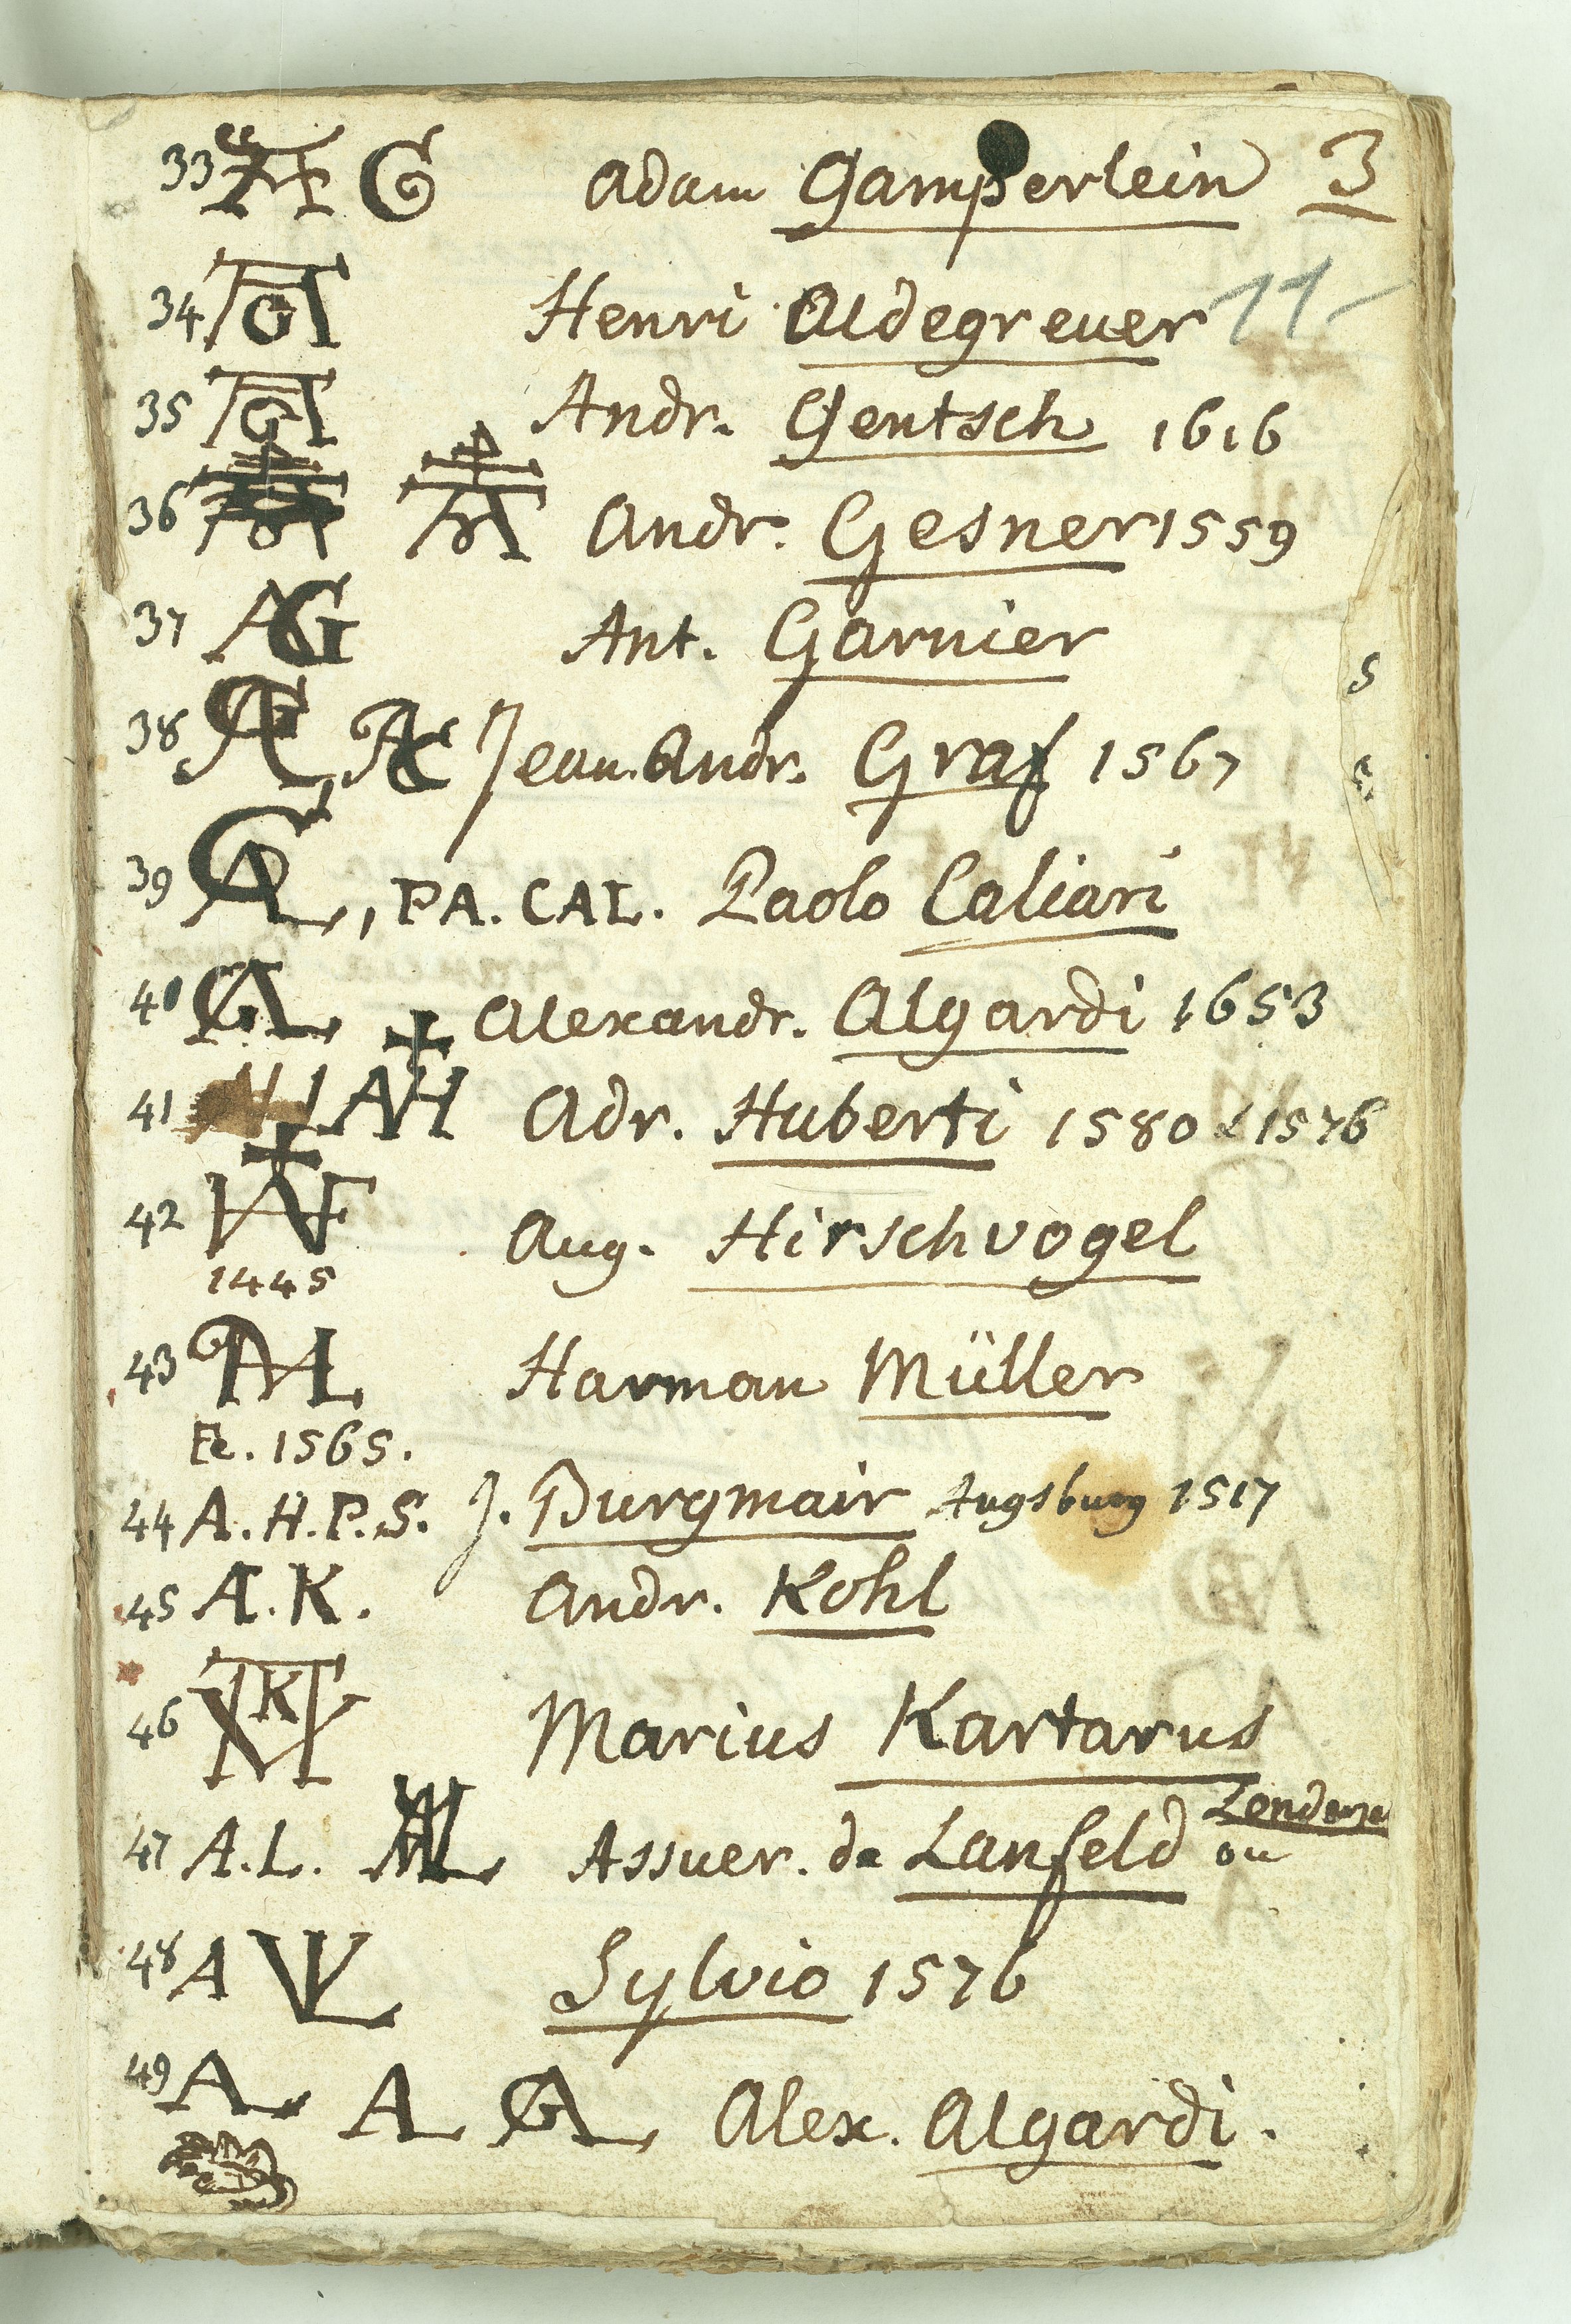 33 A G Adam Gamperlein 3
34 AG Henri Aldegrever 11
35 AG Andr. Gentsch 1616
36 Andr. Gesner 1559
37 AG Ant. Garnier
38 Jean. Andr. Graf 1567
39 , PA. CAL. Paolo Caliari
40 Alexandr. Algardi 1653
41 AH Adr. Huberti 1580 & 1576
42 Aug. Hirschvogel
1445
43 Harman Müller
Fe. 1565.
44 A. H. P. S. J. Burgmair Augsburg 1517
45 A. K. Andr. Kohl
46 Marius Kartarus
47 A. L. AL Assuer. de Lanfeld ou
48 A VL Sylvio 1576
49 AL AL Alex. Algardi.